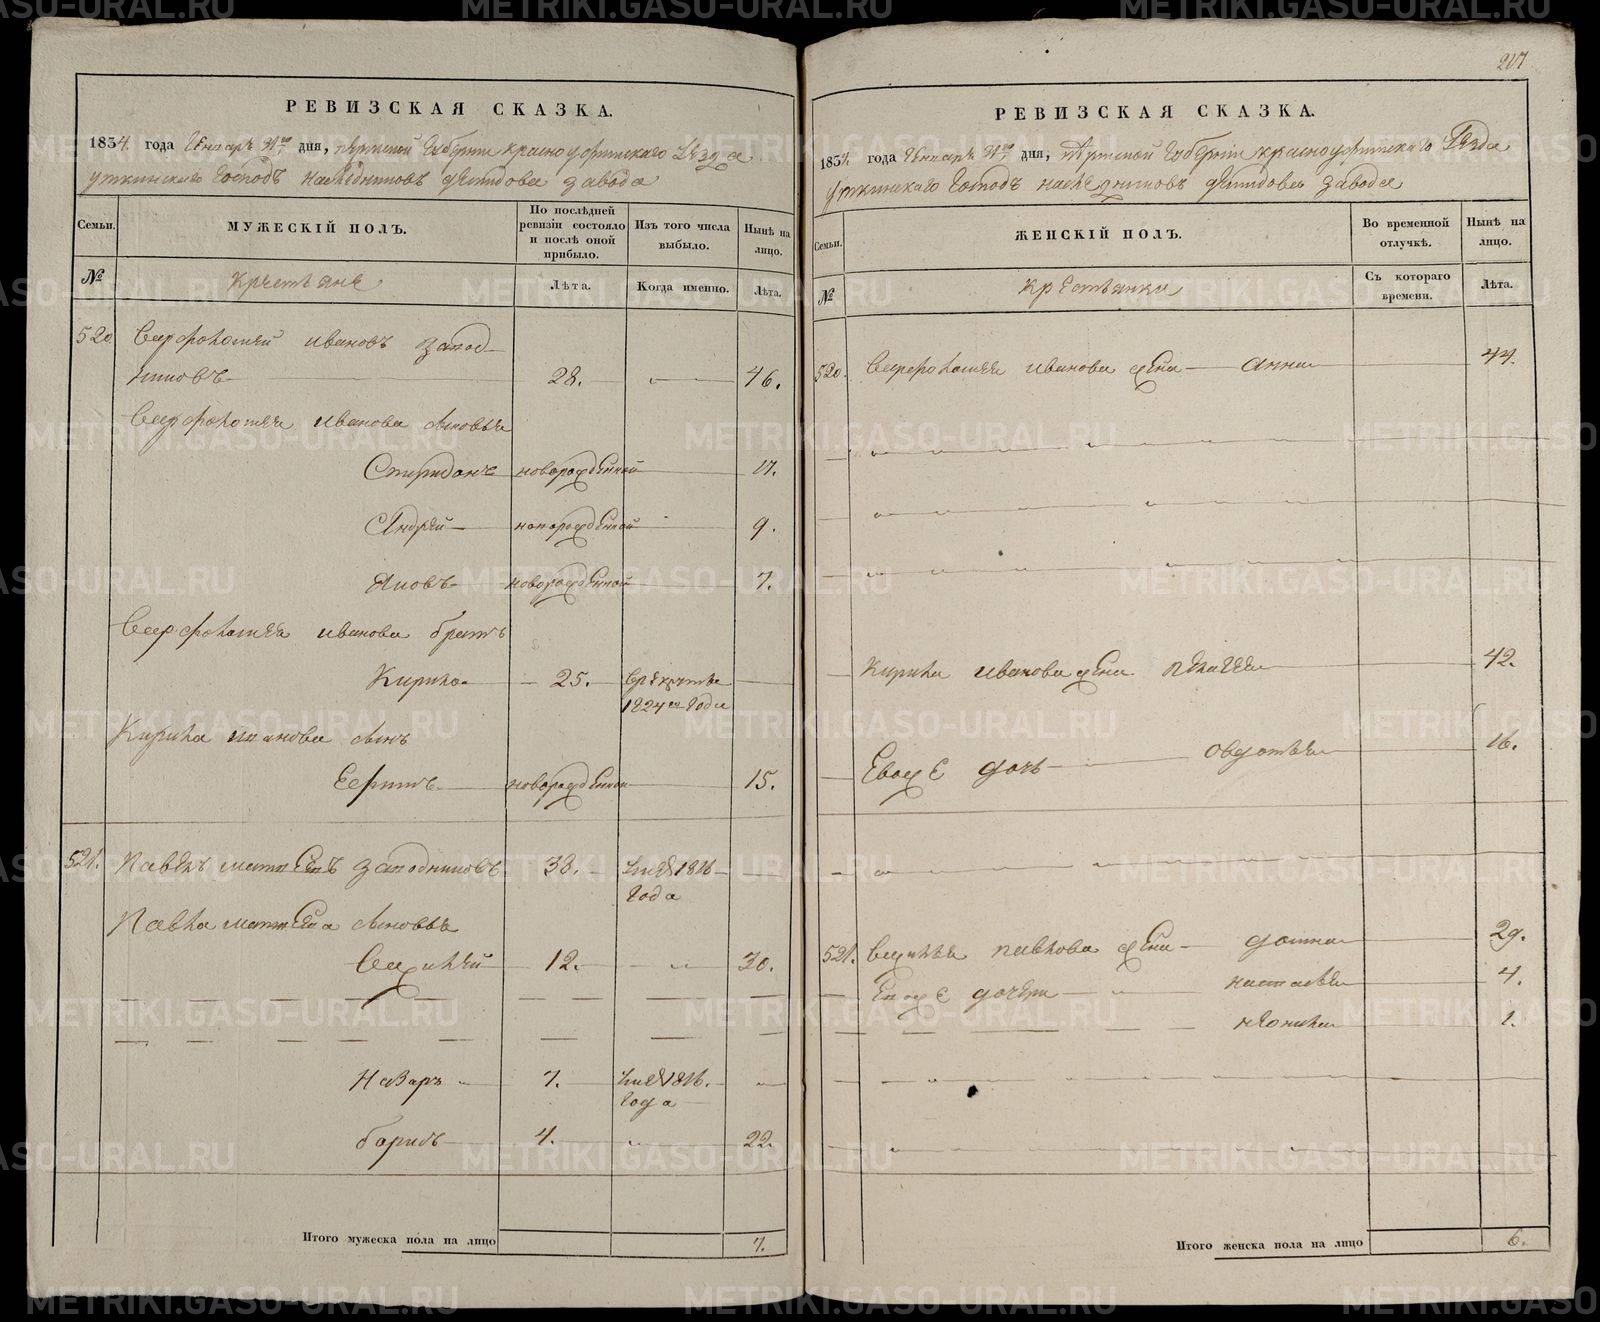 РЕВИЗСКАЯ СКАЗКА.
1834. года Генваря 31го дня, пермской Губернии красноуфимскаго Уезда
уткинскаго Господъ наследниковъ демидова завода
Семьи. МУЖЕСКІЙ ПОЛЪ. По послѣдней ревизіи состояло и послѣ оной прибыло. Изъ того числа выбыло. Нынѣ на лицо.
№ Крестьяне Лѣта. Когда именно. Лѣта.
520. Варфоломей ивановъ завод-
никовъ 28. 46.
Варфоломея иванова сыновья
Спиридонъ новорожденной 17.
Андрей новорожденной 9.
Яковъ новорожденной 7.
Варфоломея иванова братъ
Кирило 25. Врекруты
1824го Года
Кирила иванова сынъ
новорожденной 15.
521. Павелъ матвеевъ заводниковъ 38. 1816
Года
Павла матвеева сыновья
Василей 12. 30.
Назаръ 7. 1816.
Года
борисъ 4. 22
Итого мужеска пола на лицо 7.
217
РЕВИЗСКАЯ СКАЗКА.
1834. года Генваря 31го дня, пермской Губернии красноуфимскаго Уезда
уткинскаго Господъ наследниковъ демидова завода
Семьи. ЖЕНСКІЙ ПОЛЪ. Во временной отлучкѣ. Нынѣ на лицо.
№ Крестьянки Съ котораго времени. Лѣта.
520. Варфоломея иванова жена анна 44.
Кирила иванова жена пелагея 42.
Евоже дочь овдотья 16.
521. Василья павлова жена домна 29.
Евоже дочери настасья 4.
неонила 1.
Итого женска пола на лицо 6.
METRIKI.GASO-URAL.RU